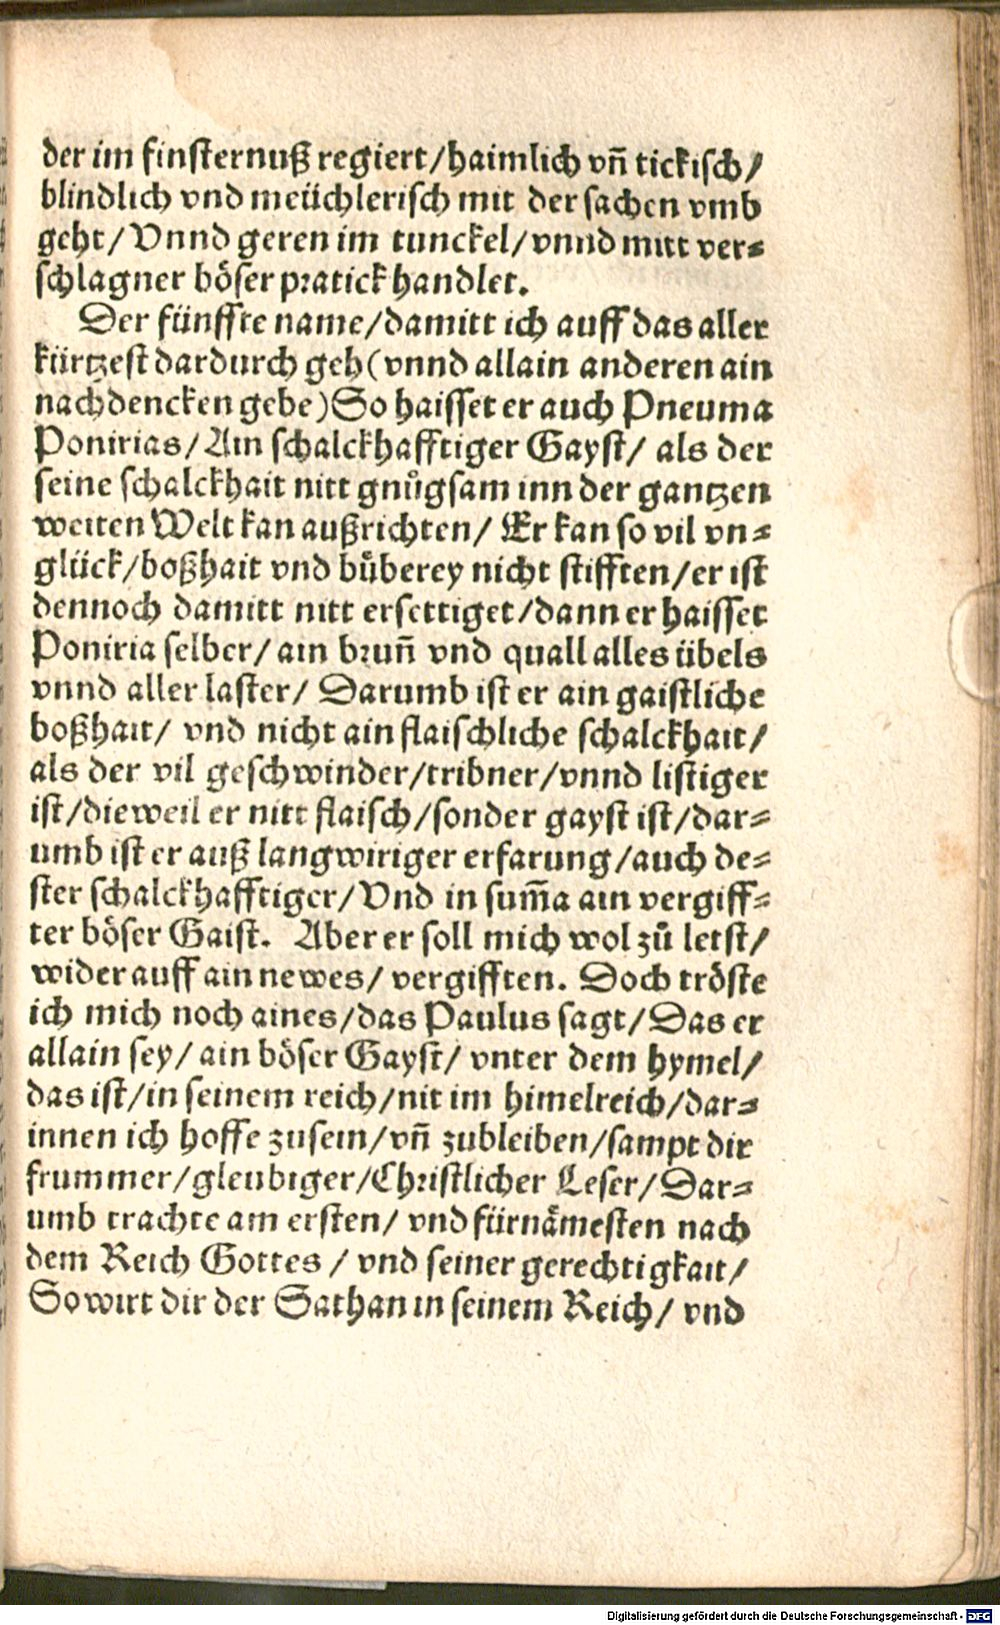 der im finsternuß regiert/haimlich vn̄ tickisch/
blindlich vnd meüchlerisch mit der sachen vmb
geht/ Vnnd geren im tunckel/vnnd mitt ver⸗
schlagner böser pratick handlet.
Der fünffte name/damitt ich auff das aller
kürtzest dardurch geh(vnnd allain anderen ain
nachdencken gebe)So haisset er auch Pneuma
Ponirias/ Ain schalckhafftiger Gayst/ als der
seine schalckhait nitt gnůgsam inn der gantzen
weiten Welt kan außrichten/ Er kan so vil vn⸗
glück/boßhait vnd bůberey nicht stifften/er ist
dennoch damitt nitt ersettiget/dann er haisset
Poniria selber/ ain brun̄ vnd quall alles übels
vnnd aller laster/ Darumb ist er ain gaistliche
boßhait/ vnd nicht ain flaischliche schalckhait/
als der vil geschwinder/tribner/vnnd listiger
ist/dieweil er nitt flaisch/sonder gayst ist/dar⸗
umb ist er auß langwiriger erfarung/auch de⸗
ster schalckhafftiger/Vnd in sum̄a ain vergiff⸗
ter böser Gaist. Aber er soll mich wol zů letst/
wider auff ain newes/ vergifften. Doch tröste
ich mich noch aines/das Paulus sagt/Das er
allain sey/ ain böser Gayst/ vnter dem hymel/
das ist/in seinem reich/nit im himelreich/dar⸗
innen ich hoffe zusein/vn̄ zubleiben/sampt dir
frummer/gleubiger/Christlicher Leser/Dar⸗
umb trachte am ersten/ vnd fürnämesten nach
dem Reich Gottes / vnd seiner gerechtigkait/
So wirt dir der Sathan in seinem Reich/ vnd
Digitalisierung gefördert durch die Deutsche Forschungsgemeinschaft - DFG